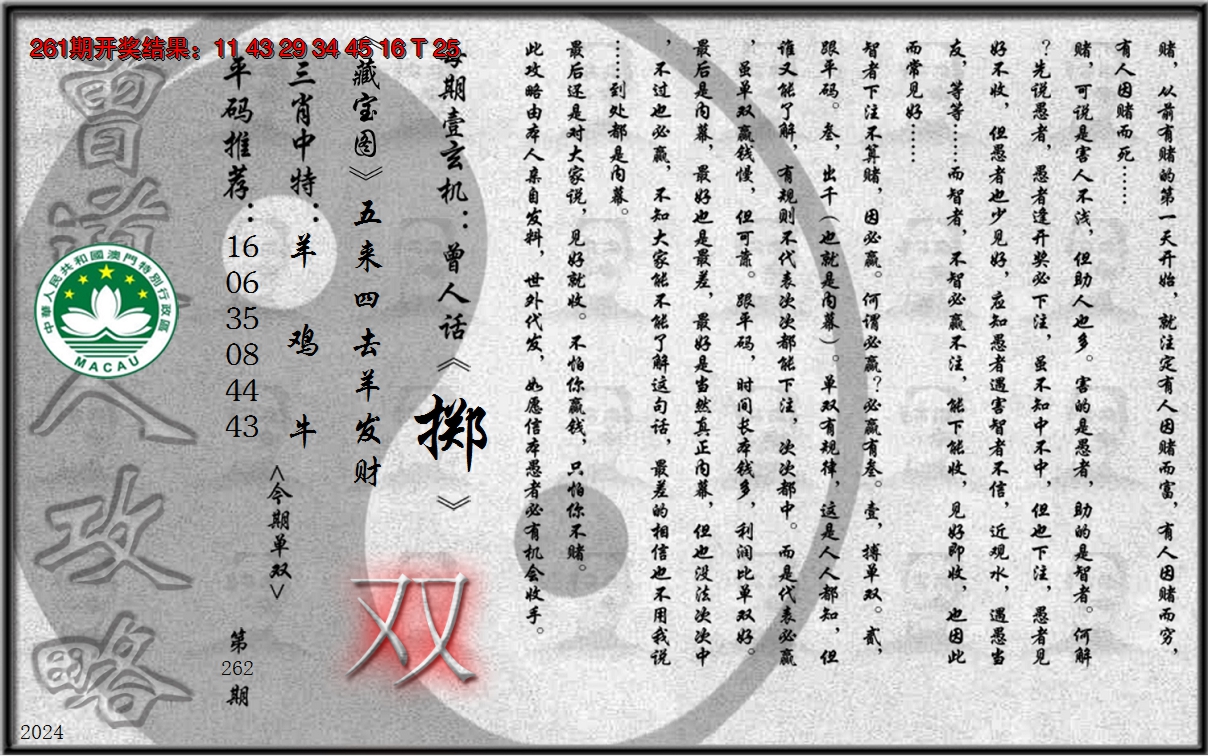 261期开奖结果：11 43 29 34 45 16 T 25
赌，从前有赌的第一天开始，就注定有人因赌而富，有人因赌而穷，
有人因赌而死……
赌，可说是害人不浅，但助人也多。害的是愚者，助的是智者。何解
？先说愚者，愚者逢开奖必下注，虽不知中不中，但也下注，愚者见
好不收，但愚者也少见好，应知愚者遇害智者不信，近观水，遇愚当
友，等等……而智者，不智必赢不注，能下能收，见好即收，也因此
而常见好……
智者下注不算赌，因必赢。何谓必赢？必赢有叁。壹，搏单双。贰，
跟平码。叁，出千（也就是内幕）。单双有规律，这是人人都知，但
谁又能了解，有规则不代表次次都能下注，次次都中。而是代表必赢
，虽单双赢钱慢，但可靠。跟平码，时间长本钱多，利润比单双好。
最后是内幕，最好也是最差，最好是当然真正内幕，但也没法次次中
，不过也必赢，不知大家能不能了解这句话，最差的相信也不用我说
……到处都是内幕。
最后还是对大家说，见好就收。不怕你赢钱，只怕你不赌。
此攻略由本人亲自发料，世外代发，如愿信本愚者必有机会收手。
每期壹玄机：曾人话《掷》
《藏宝图》五来四去羊发财
双
三肖中特：羊 鸡 牛
<今期单双>
平码推荐：16 06 35 08 44 43
第262期
曾道人攻略
中華人民共和國澳門特別行政區
MACAU
2024